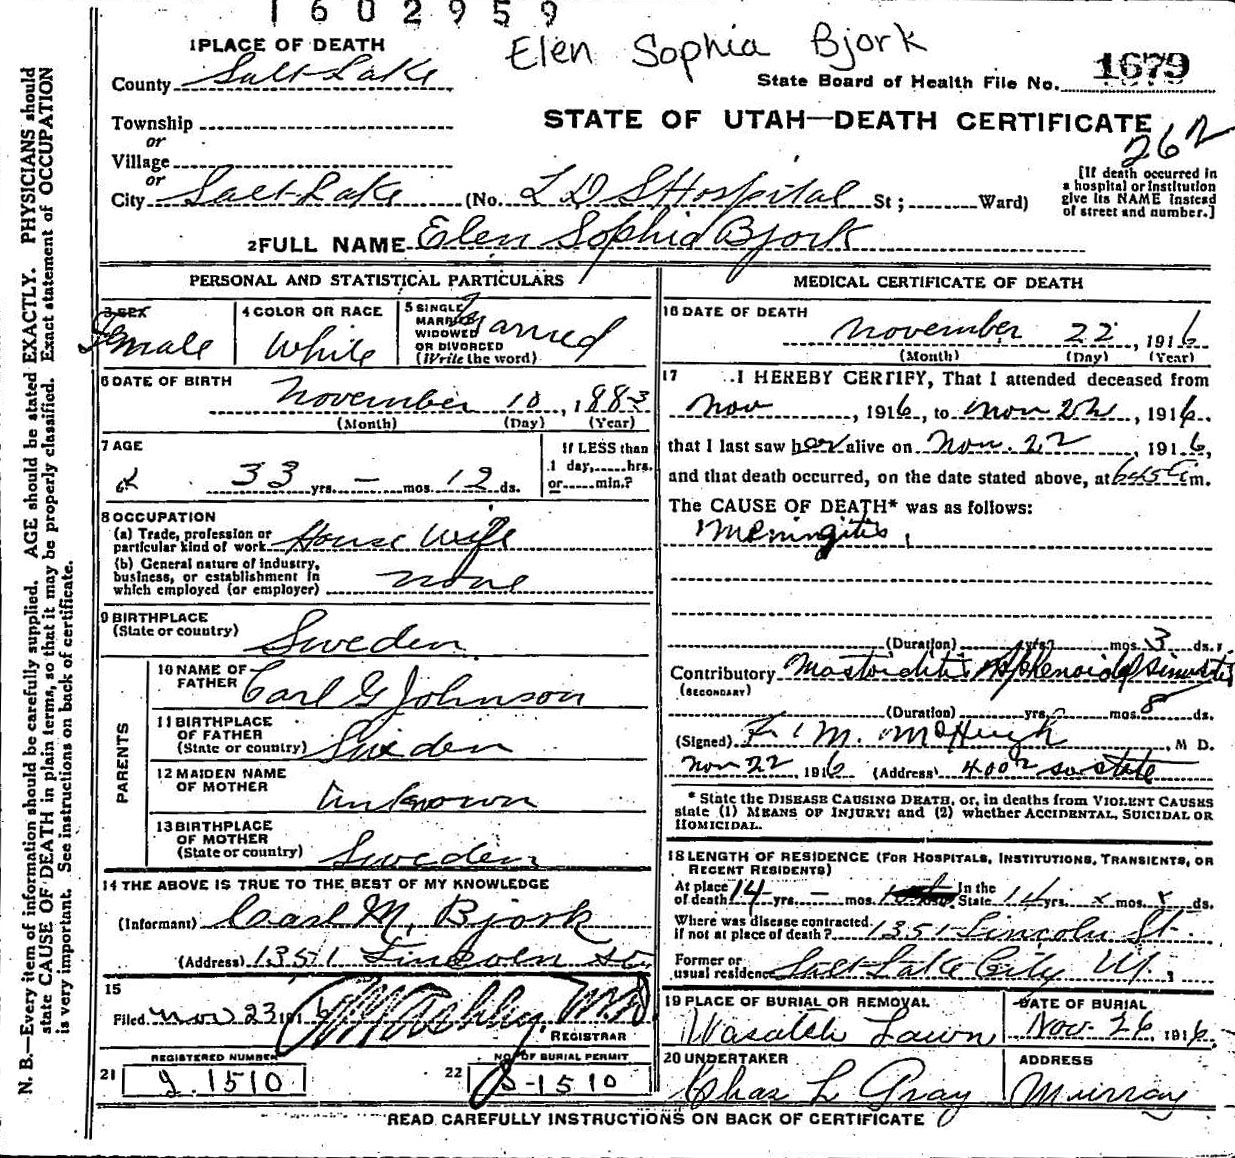 1602959
Elen Sophia Bjork
1 PLACE OF DEATH
County Salt Lake
State Board of Health File No. 1679
Township
or
Village
or
City Salt Lake (No. L D S Hospital St; Ward)
STATE OF UTAH—DEATH CERTIFICATE
262
[If death occurred in
a hospital or institution
give its NAME instead
of street and number.]
2 FULL NAME Elen Sophia Bjork
PERSONAL AND STATISTICAL PARTICULARS
3 SEX
Female
4 COLOR OR RACE
White
5 SINGLE
MARRIED
WIDOWED
OR DIVORCED
(Write the word)
Married
6 DATE OF BIRTH
November 10, 1883
(Month) (Day) (Year)
7 AGE
33 yrs. — mos. 12 ds.
If LESS than
1 day, hrs.
or min.?
8 OCCUPATION
(a) Trade, profession or
particular kind of work House Wife
(b) General nature of industry,
business, or establishment in
which employed (or employer) none
9 BIRTHPLACE
(State or country) Sweden
PARENTS
10 NAME OF
FATHER Carl G Johnson
11 BIRTHPLACE
OF FATHER
(State or country) Sweden
12 MAIDEN NAME
OF MOTHER Unknown
13 BIRTHPLACE
OF MOTHER
(State or country) Sweden
14 THE ABOVE IS TRUE TO THE BEST OF MY KNOWLEDGE
(Informant) Carl M. Bjork
(Address) 1351 Lincoln St.
15
Filed Nov 23 191 6 Ashley, M.D
REGISTRAR
REGISTERED NUMBER
21 1510
NO. OF BURIAL PERMIT
22 -1510
MEDICAL CERTIFICATE OF DEATH
16 DATE OF DEATH
November 22, 1916
(Month) (Day) (Year)
17 I HEREBY CERTIFY, That I attended deceased from
Nov , 1916, to Nov 22, 1916.
that I last saw her alive on Nov. 22 1916,
and that death occurred, on the date stated above, at m.
The CAUSE OF DEATH* was as follows:
Meningitis
(Duration) yrs. mos. 3 ds.
Contributory Mastoiditis
(SECONDARY)
(Duration) yrs. mos. 8 ds.
(Signed) M. McHugh, M D.
Nov 22, 1916 (Address) 400 so state
* State the DISEASE CAUSING DEATH, or, in deaths from VIOLENT CAUSES
state (1) MEANS OF INJURY; and (2) whether ACCIDENTAL, SUICIDAL OR
HOMICIDAL.
18 LENGTH OF RESIDENCE (FOR HOSPITALS, INSTITUTIONS, TRANSIENTS, OR
RECENT RESIDENTS)
At place
of death 14 yrs. — mos. In the
State 14 yrs. x mos. x ds.
Where was disease contracted
if not at place of death? 1351 Lincoln St.
Former or
usual residence Salt Lake City Ut.
19 PLACE OF BURIAL OR REMOVAL
Wasatch Lawn
DATE OF BURIAL
Nov. 26, 1916.
20 UNDERTAKER
Chas L Gray
ADDRESS
Murray
READ CAREFULLY INSTRUCTIONS ON BACK OF CERTIFICATE
N. B.—Every item of information should be carefully supplied. AGE should be stated EXACTLY. PHYSICIANS should
state CAUSE OF DEATH in plain terms, so that it may be properly classified. Exact statement of OCCUPATION
is very important. See instructions on back of certificate.